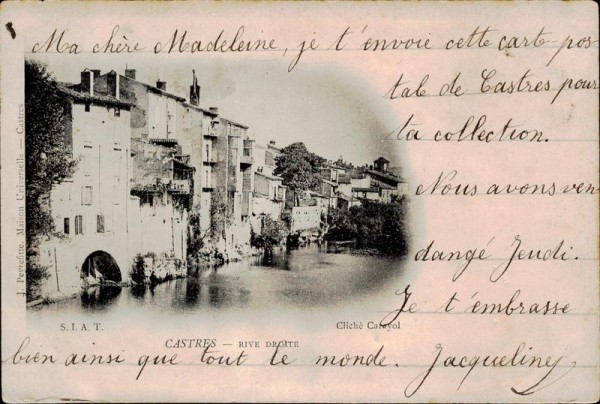 Ma chère Madeleine, je t'envoie cette carte pos-
tale de Castres pour
ta collection.
Nous avons ven
dangé Jeudi.
Je t'embrasse
bien ainsi que tout le monde. Jacqueline
J. Peyrefitte, Maison Universelle. — Castres
S. I. A. T.
Cliché Carayol
CASTRES — RIVE DROITE